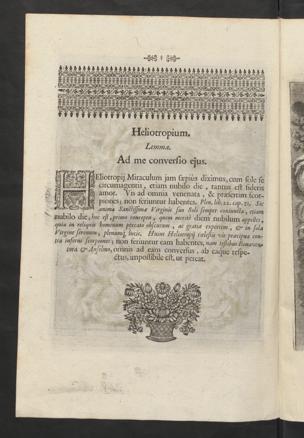 Heliotropium.
Lemma.
Ad me conversio ejus.
HEliotropij Miraculum jam sæpiùs diximus, cum sole se
circumagentis, etiam nubilo die, tantus est sideris
amor. Vis ad omnia venenata, & præsertim scor-
piones; non feriuntur habentes. Plin. lib. 22. cap. 21. Sic
anima Sanctissimæ Virginis suo Soli semper conjuncta, etiam
nubilo die, hoc est, primo conceptu, quem meritò diem nubilum appelles,
quia in reliquis hominum peccato obscurum, ac gratiæ expertem, & in sola
Virgine serenum, plenumq; lucis. Hujus Heliotropij cœlestis vis præcipua con-
tra inferni scorpiones; non feriuntur eam habentes, nam testibus Bonaven-
tura & Anselmo, omnis ad eam conversus, ab eaque respe-
ctus, impossibile est, ut pereat.